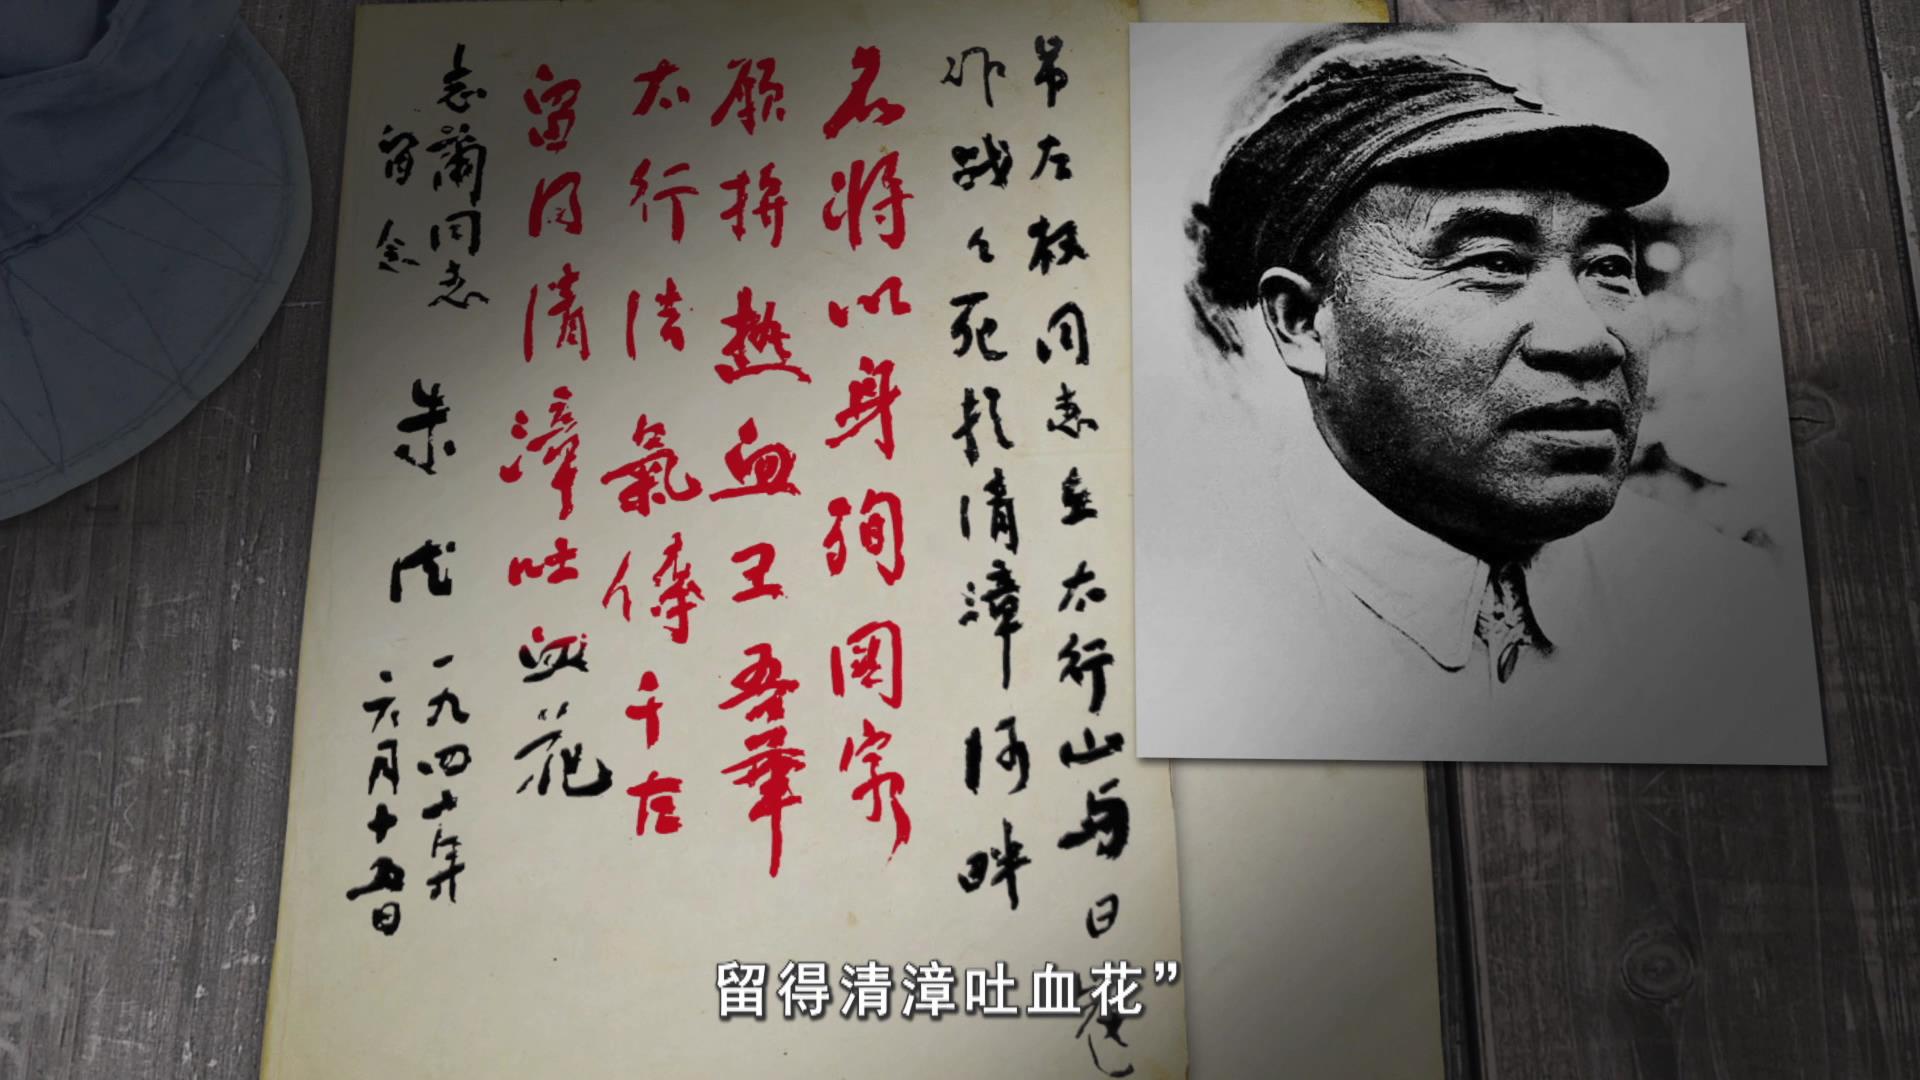 吊左权同志在太行山与日寇
作战々死於清漳河畔
名将以身殉国家
願拚热血卫吾華
太行浩氣傳千古
留得清漳吐血花
志蘭同志
留念
朱德
一九四十年
六月十五日
留得清漳吐血花”